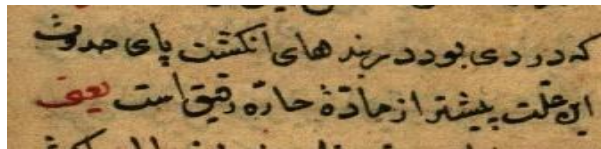 که دردی بود در بندهای انگشت پای حدوث
این علت بیشتر از مادهٔ حاده رقیق است یعنی